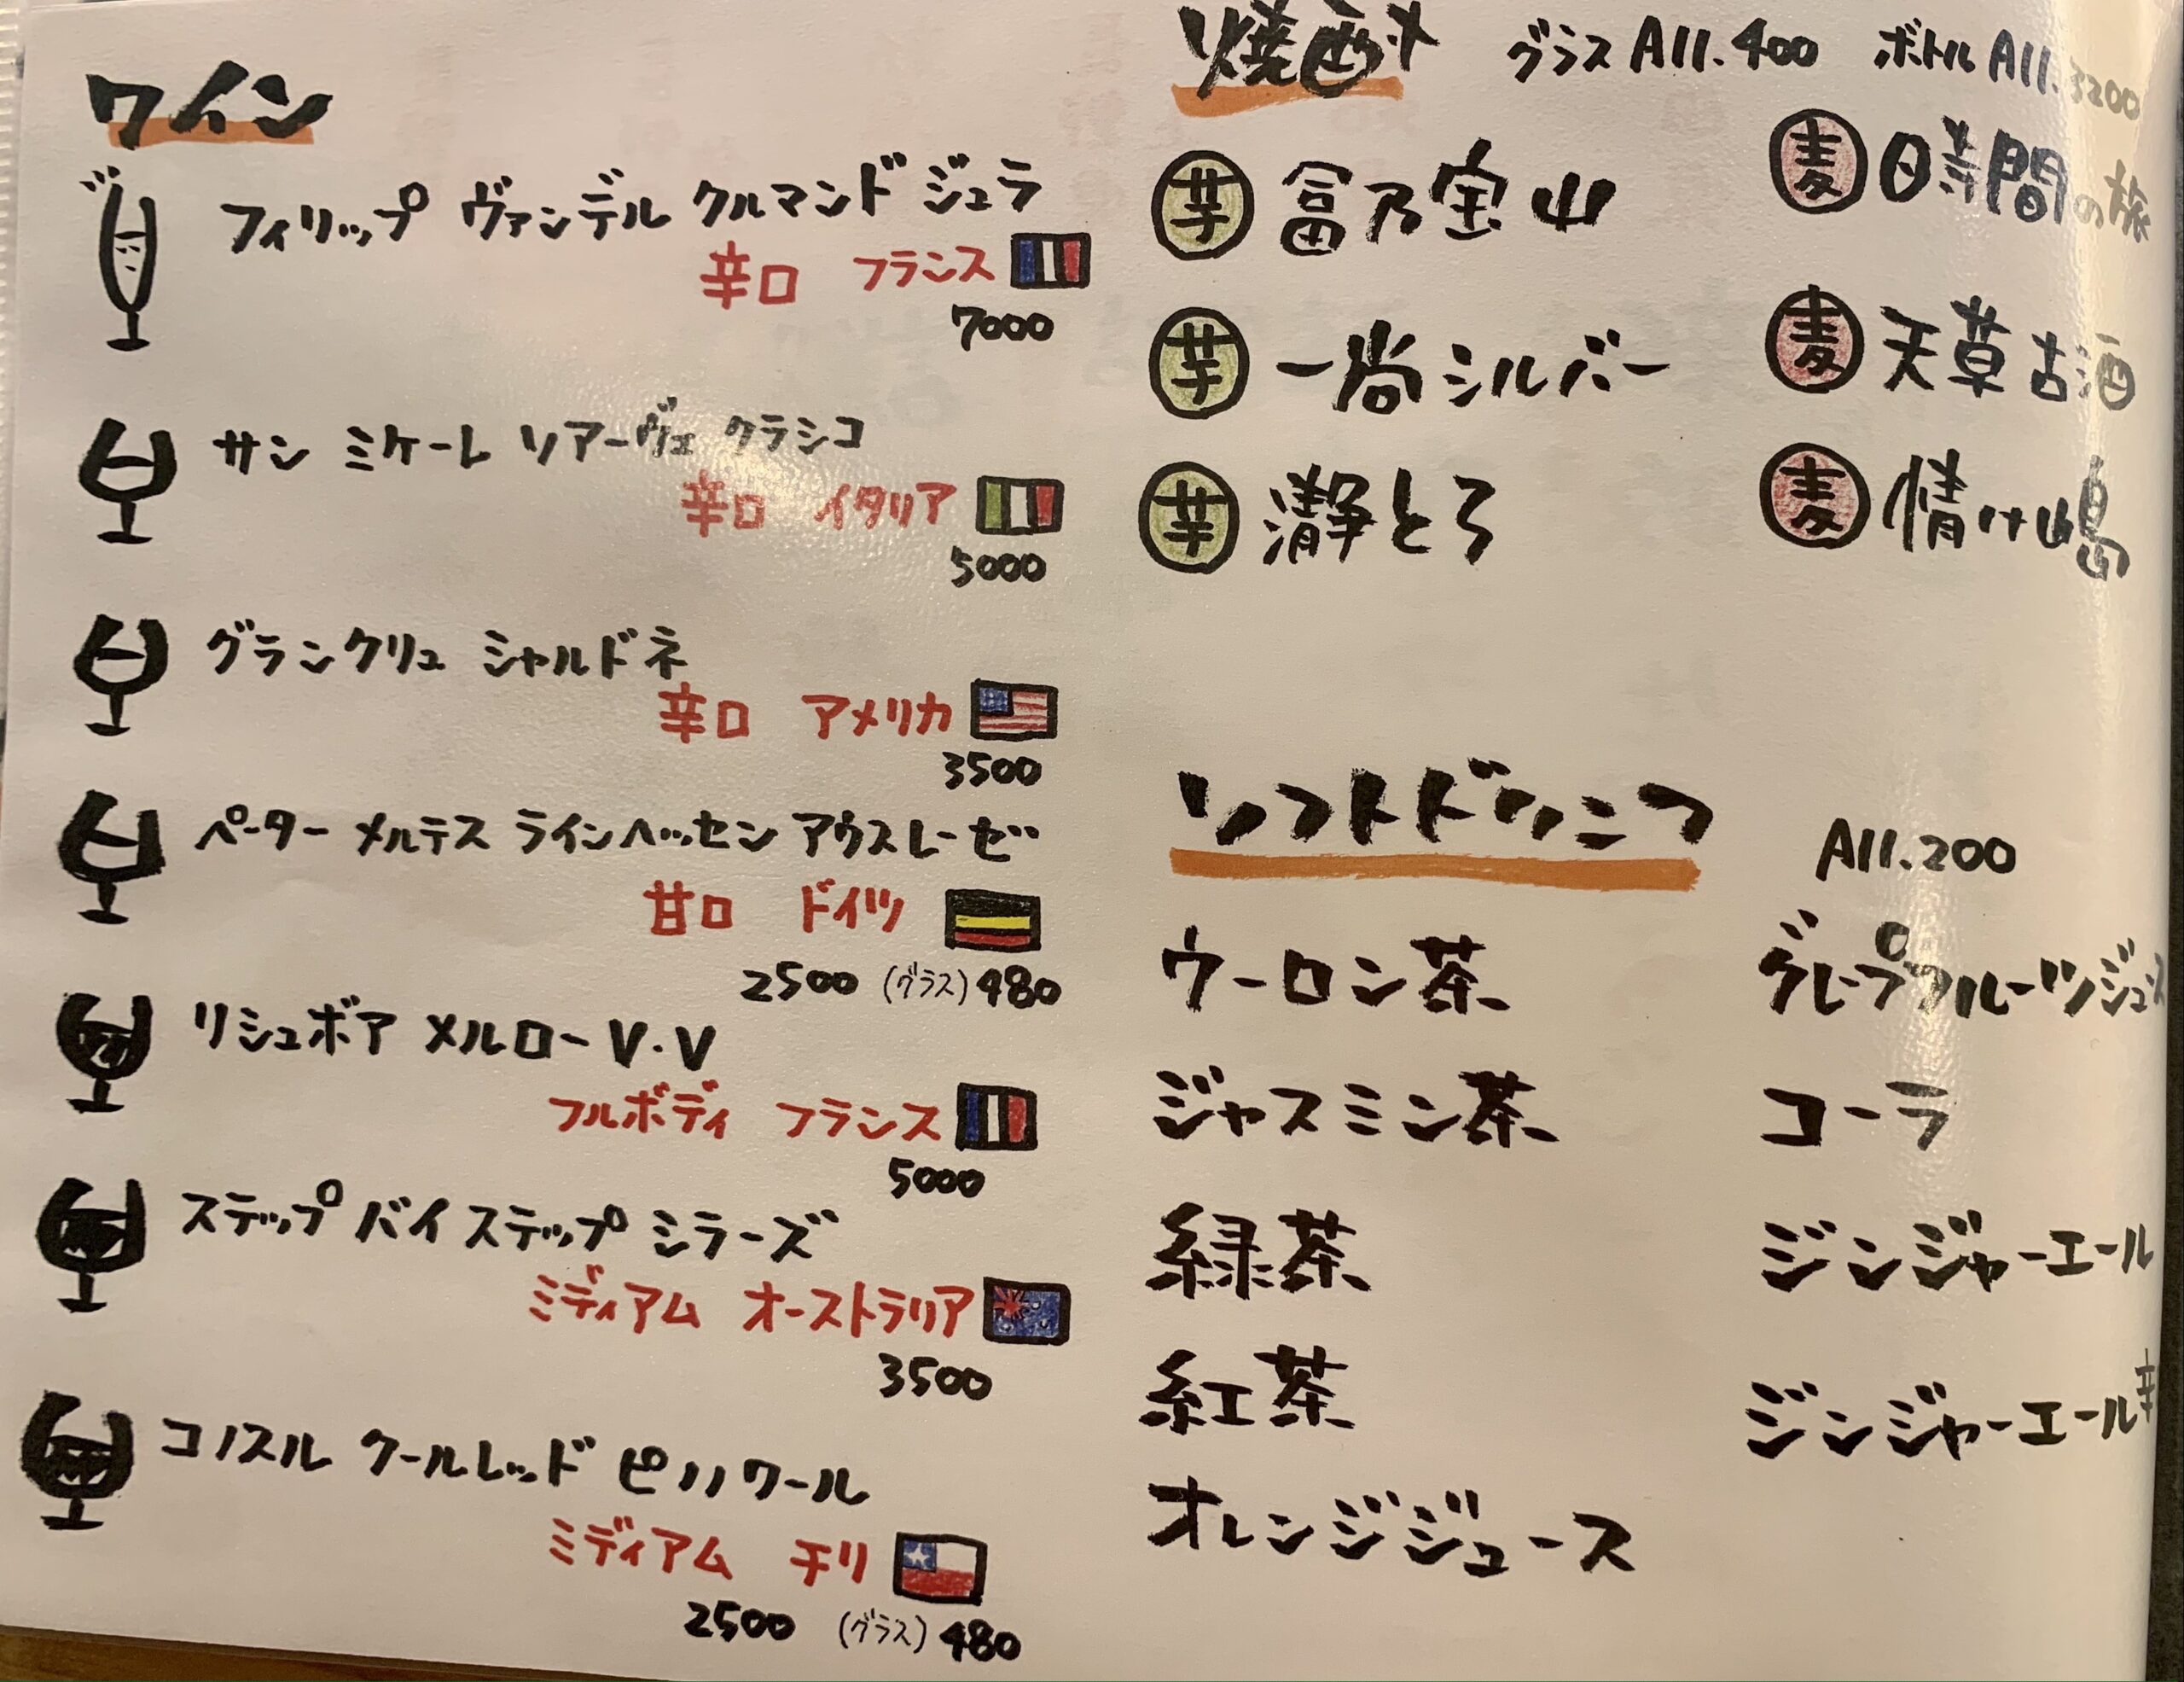 ワイン
フィリップ ヴァンデル クルマンド ジュラ
辛口 フランス
7000
サン ミケーレ ソアーヴェ クラシコ
辛口 イタリア
5000
グランクリュ シャルドネ
辛口 アメリカ
3500
ペーター メルテス ラインヘッセン アウスレーゼ
甘口 ドイツ
2500 (グラス) 480
リシュボア メルローV.V
フルボディ フランス
5000
ステップ バイ ステップ シラーズ
ミディアム オーストラリア
3500
コノスル クールレッド ピノノワール
ミディアム チリ
2500 (グラス) 480
焼酎 グラス All.400 ボトル All.3200
芋 富乃宝山
芋 一尚シルバー
芋 瀞とろ
麦 時間の旅
麦 天草古酒
麦 情け嶋
ソフトドリンク All.200
ウーロン茶
ジャスミン茶
緑茶
紅茶
オレンジジュース
グレープフルーツジュース
コーラ
ジンジャーエール
ジンジャーエール辛